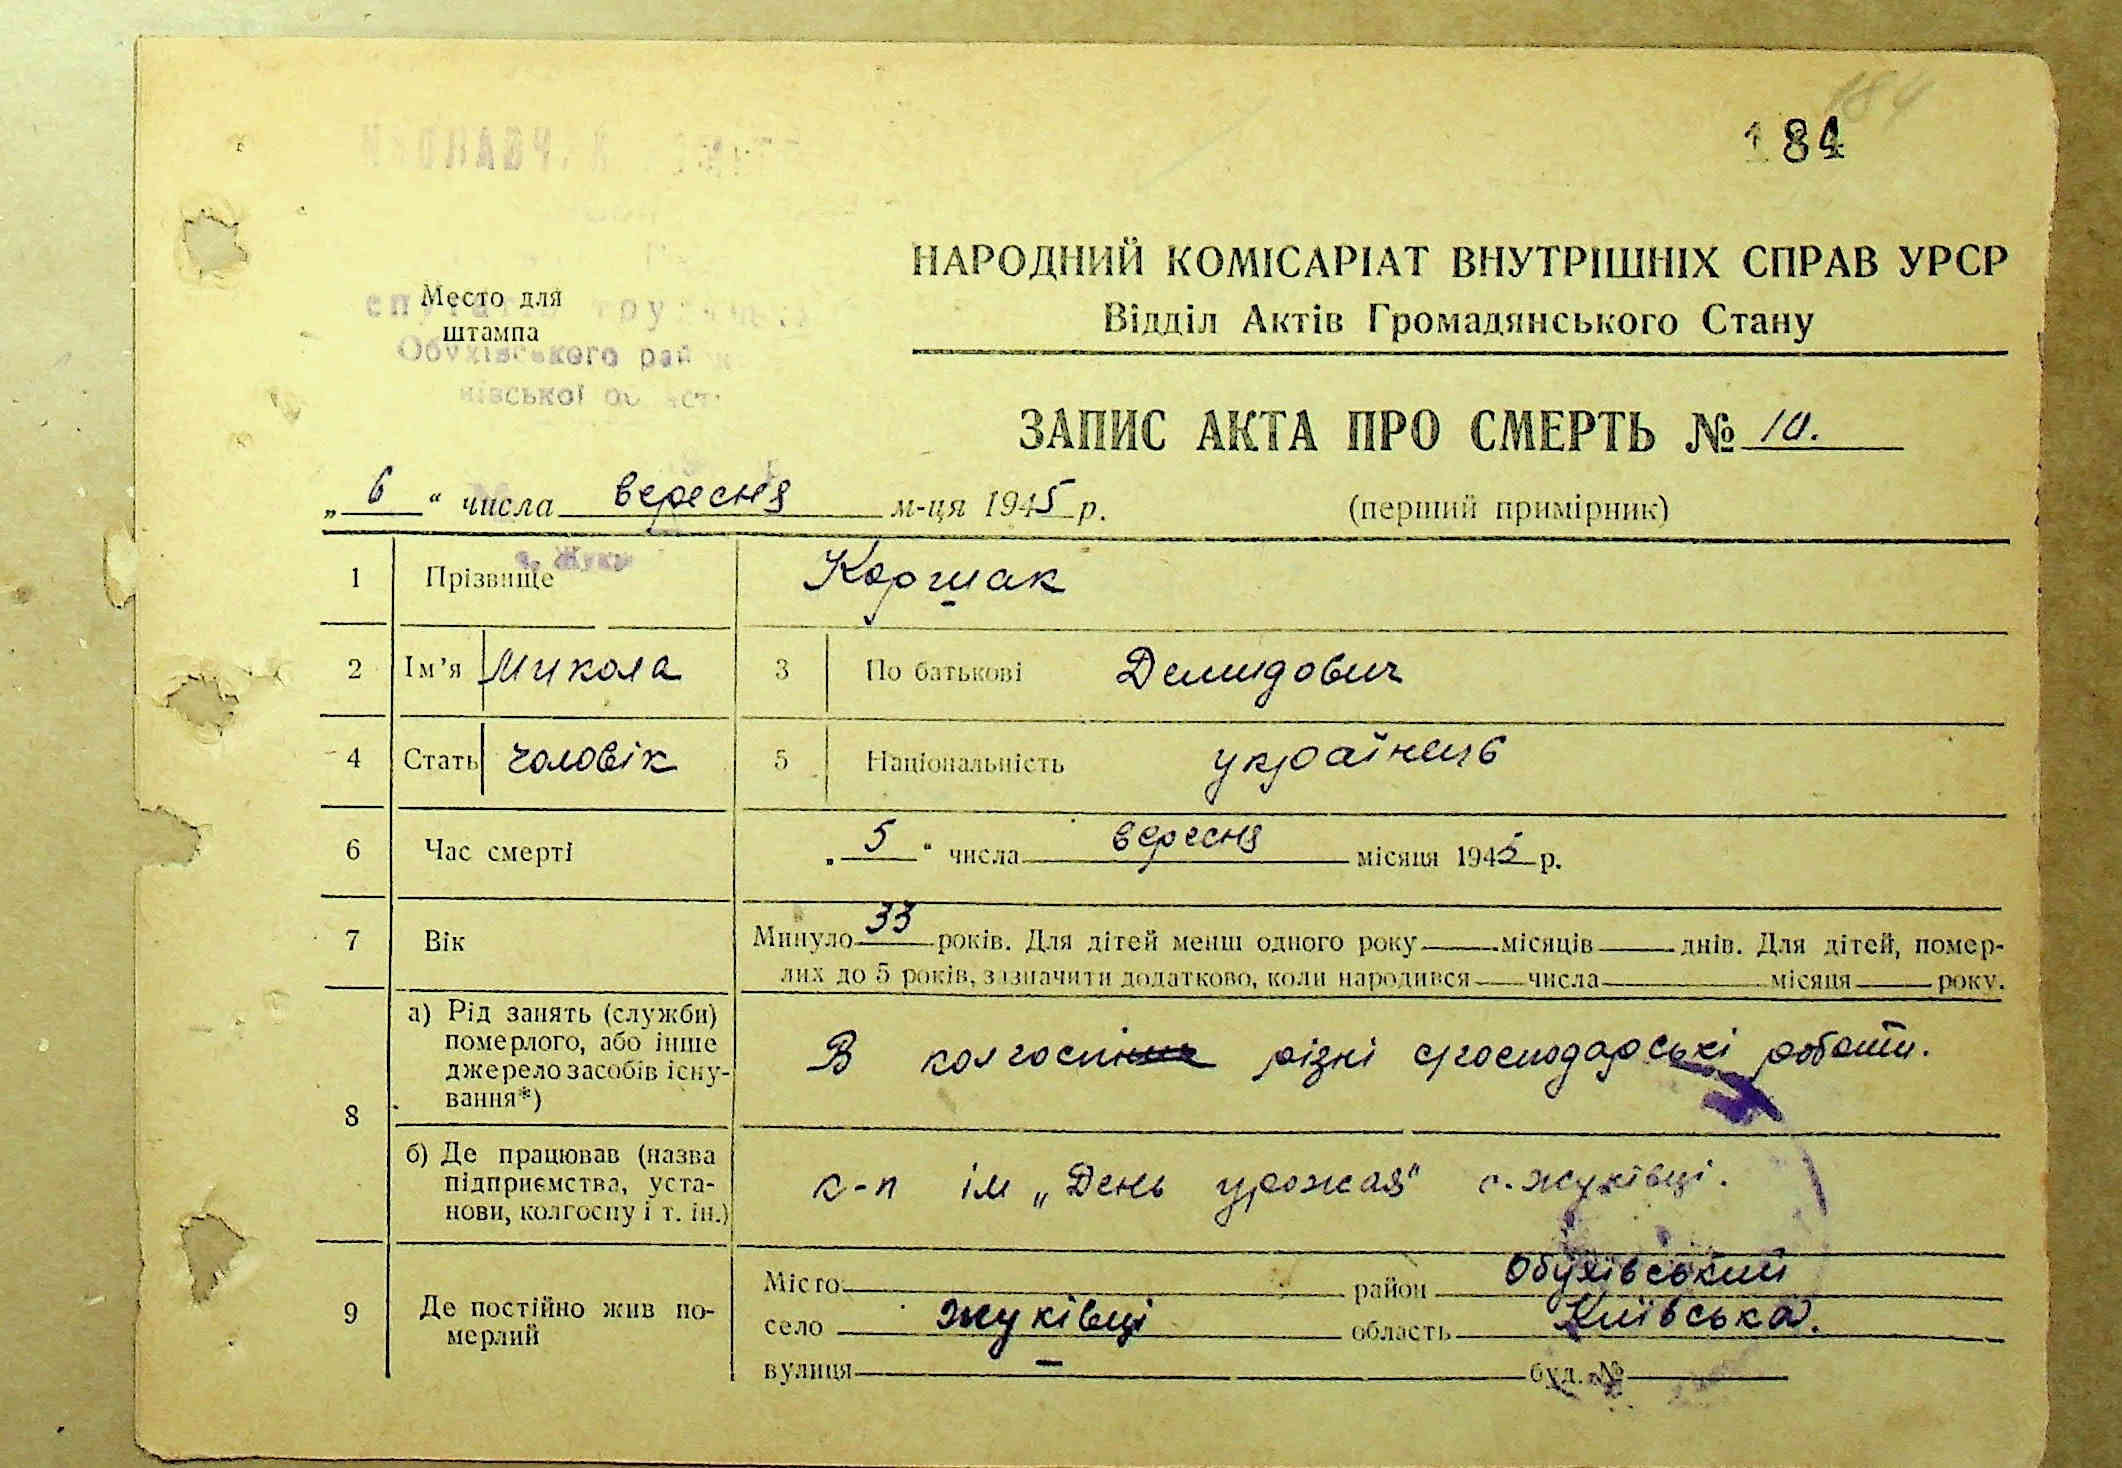 184
184
НАРОДНИЙ КОМІСАРІАТ ВНУТРІШНІХ СПРАВ УРСР
Відділ Актів Громадянського Стану
Место для
штампа
Обухівського рай
ЗАПИС АКТА ПРО СМЕРТЬ № 10.
„ 6 “ числа вересня м-ця 1945 р. (перший примірник)
1 Прізвище Коршак
2 Ім’я Микола 3 По батькові Демидович
4 Стать чоловік 5 Національність українець
6 Час смерті „ 5 “ числа вересня місяця 1945 р.
7 Вік Минуло 33 років. Для дітей менш одного року місяців днів. Для дітей, помер-
лих до 5 років, зазначити додатково, коли народився числа місяця року.
8 а) Рід занять (служби)
померлого, або інше
джерело засобів існу-
вання*)
В колгоспі різні господарські роботи.
б) Де працював (назва
підприємства, уста-
нови, колгоспу і т. ін.)
к-п ім „День урожая“ с. Жуківці.
9 Де постійно жив по-
мерлий
Місто район Обухівський
село Жуківці область Київська.
вулиця — буд. №